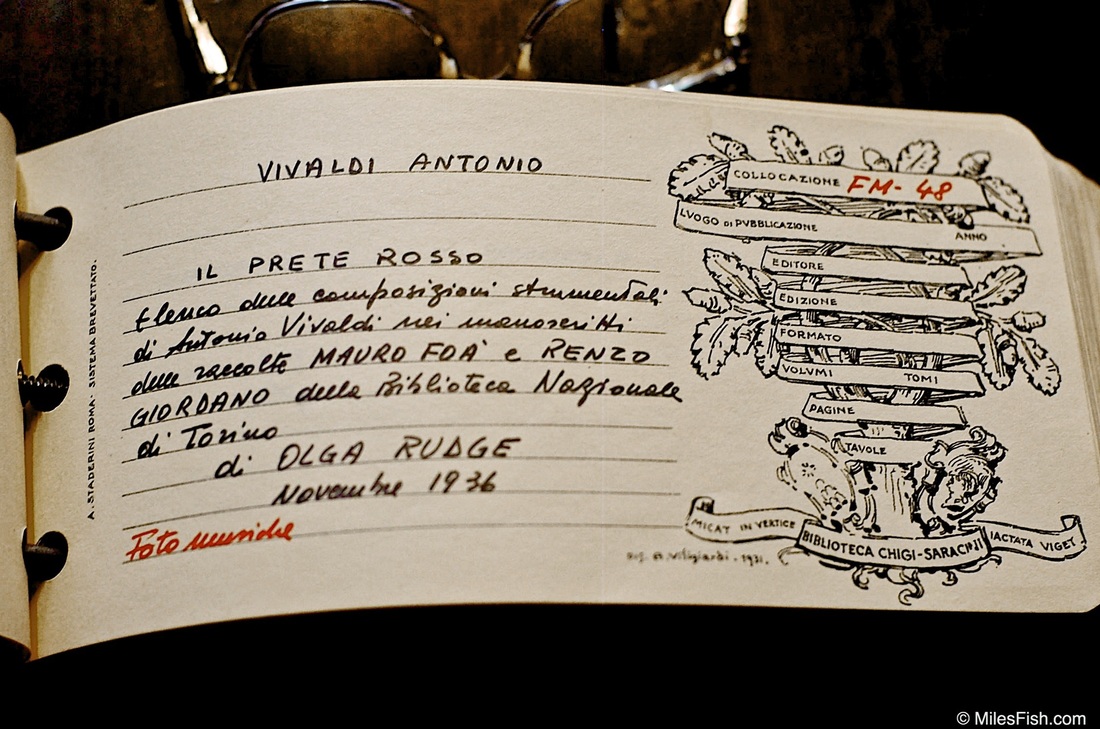 VIVALDI ANTONIO
IL PRETE ROSSO
Elenco delle composizioni strumentali
di Antonio Vivaldi nei manoscritti
delle raccolte MAURO FOÀ e RENZO
GIORDANO della Biblioteca Nazionale
di Torino
di OLGA RUDGE
Novembre 1936
Foto musiche
A. STADERINI ROMA · SISTEMA BREVETTATO.
COLLOCAZIONE FM-48
LUOGO DI PUBBLICAZIONE ANNO
EDITORE
EDIZIONE
FORMATO
VOLUMI TOMI
PAGINE
TAVOLE
MICAT IN VERTICE
BIBLIOTECA CHIGI-SARACINI
IACTATA VIGET
Viligiardi · 1931.
© MilesFish.com